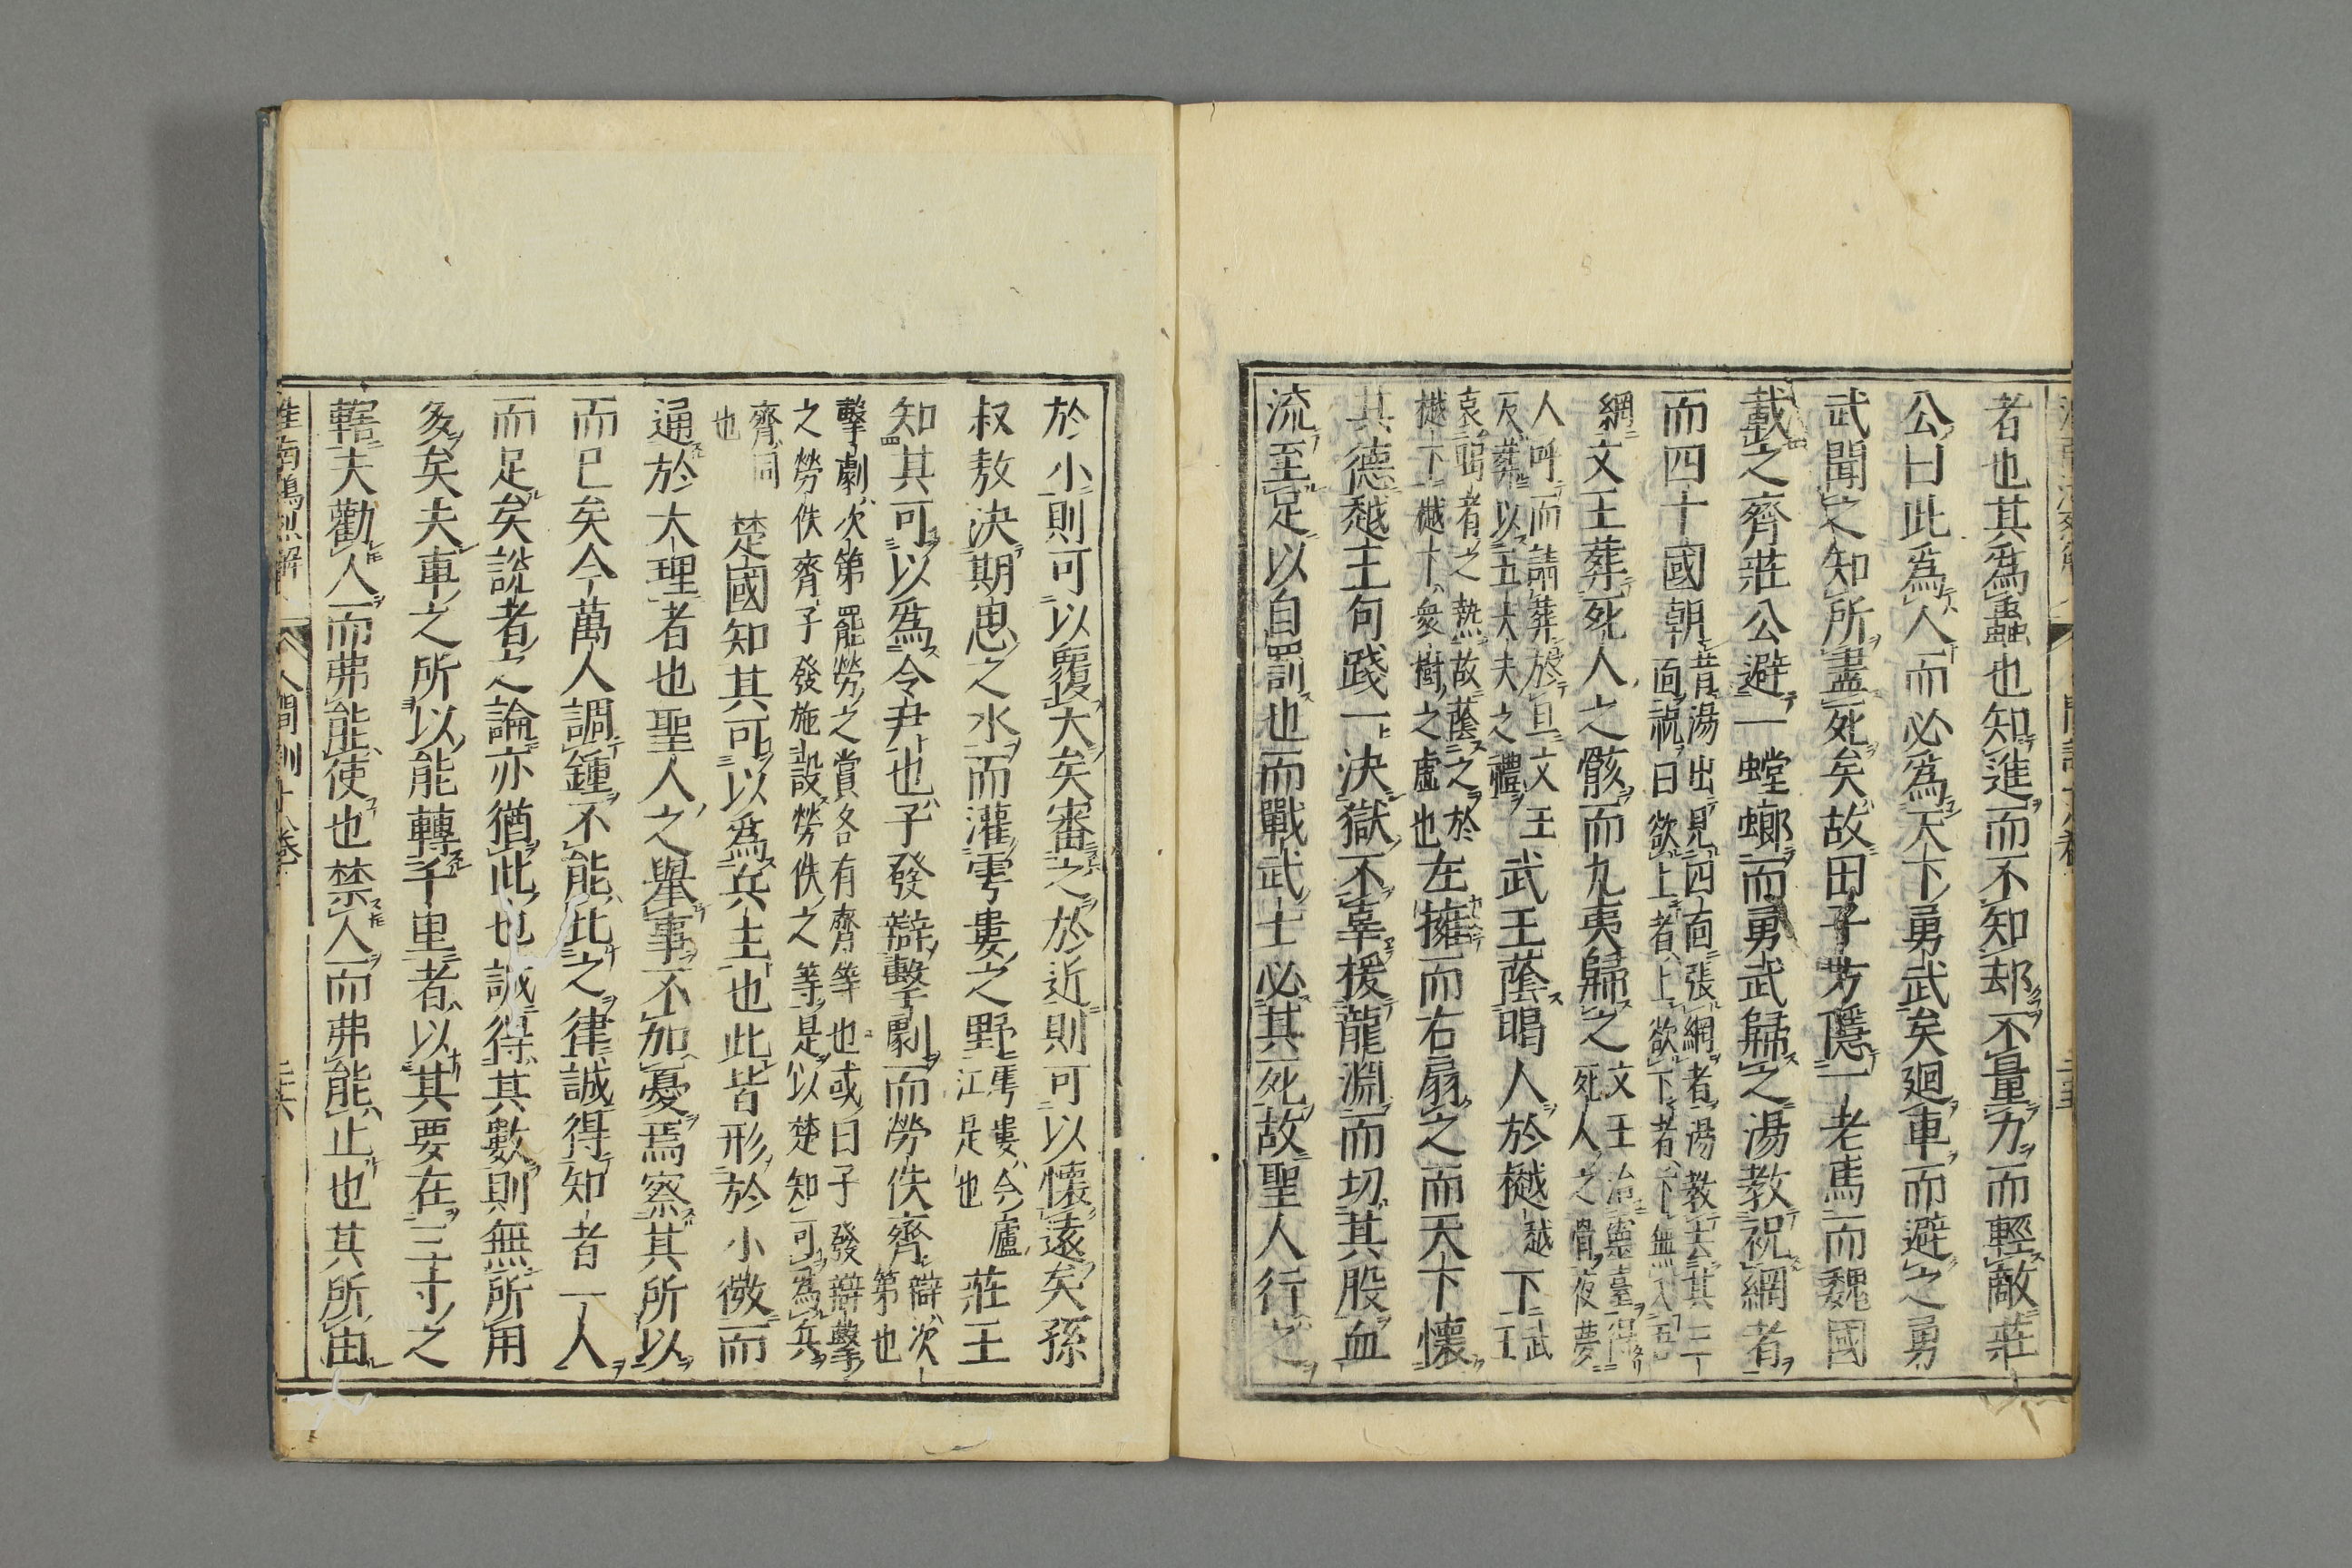 者也其爲蟲也知進而不知却不量力而輕敵莊
公曰此爲人而必爲天下勇武矣廻車而避之勇
武聞之知所盡死矣故田子方隱一老馬而魏國
載之齊莊公避一螳螂而勇武歸之湯教祝網者
而四十國朝昔湯出見四面張網者湯教去其三
面祝曰欲上者上欲下者下無入吾
網文王葬死人之骸而九夷歸之文王治靈臺得
死人之骨夜夢
人呼而請葬於旦文王
反葬以五大夫之禮武王蔭暍人於樾下武
王
哀暍者之熱故蔭之於
樾下樾下衆樹之虛也左擁而右扇之而天下懷
其德越王句踐一決獄不辜援龍淵而切其股血
流至足以自罰也而戰武士必其死故聖人行之
於小則可以覆大矣審之於近則可以懷遠矣孫
叔敖決期思之水而灌雩婁之野雩婁今廬
江是也莊王
知其可以爲令尹也子發辯擊劇而勞佚齊辯次
第也
擊劇次第罷勞之賞各有齊等也或曰子發辯擊
之勞佚齊子發施設勞佚之等是以楚知可爲兵
齊同
也楚國知其可以爲兵主也此皆形於小微而
通於大理者也聖人之舉事不加憂焉察其所以
而已矣今萬人調鍾不能比之律誠得知者一人
而足矣說者之論亦猶此也誠得其數則無所用
多矣夫車之所以能轉千里者以其要在三寸之
轄夫勸人而弗能使也禁人而弗能止也其所由
淮南鴻烈解 人間訓十八卷 二十六